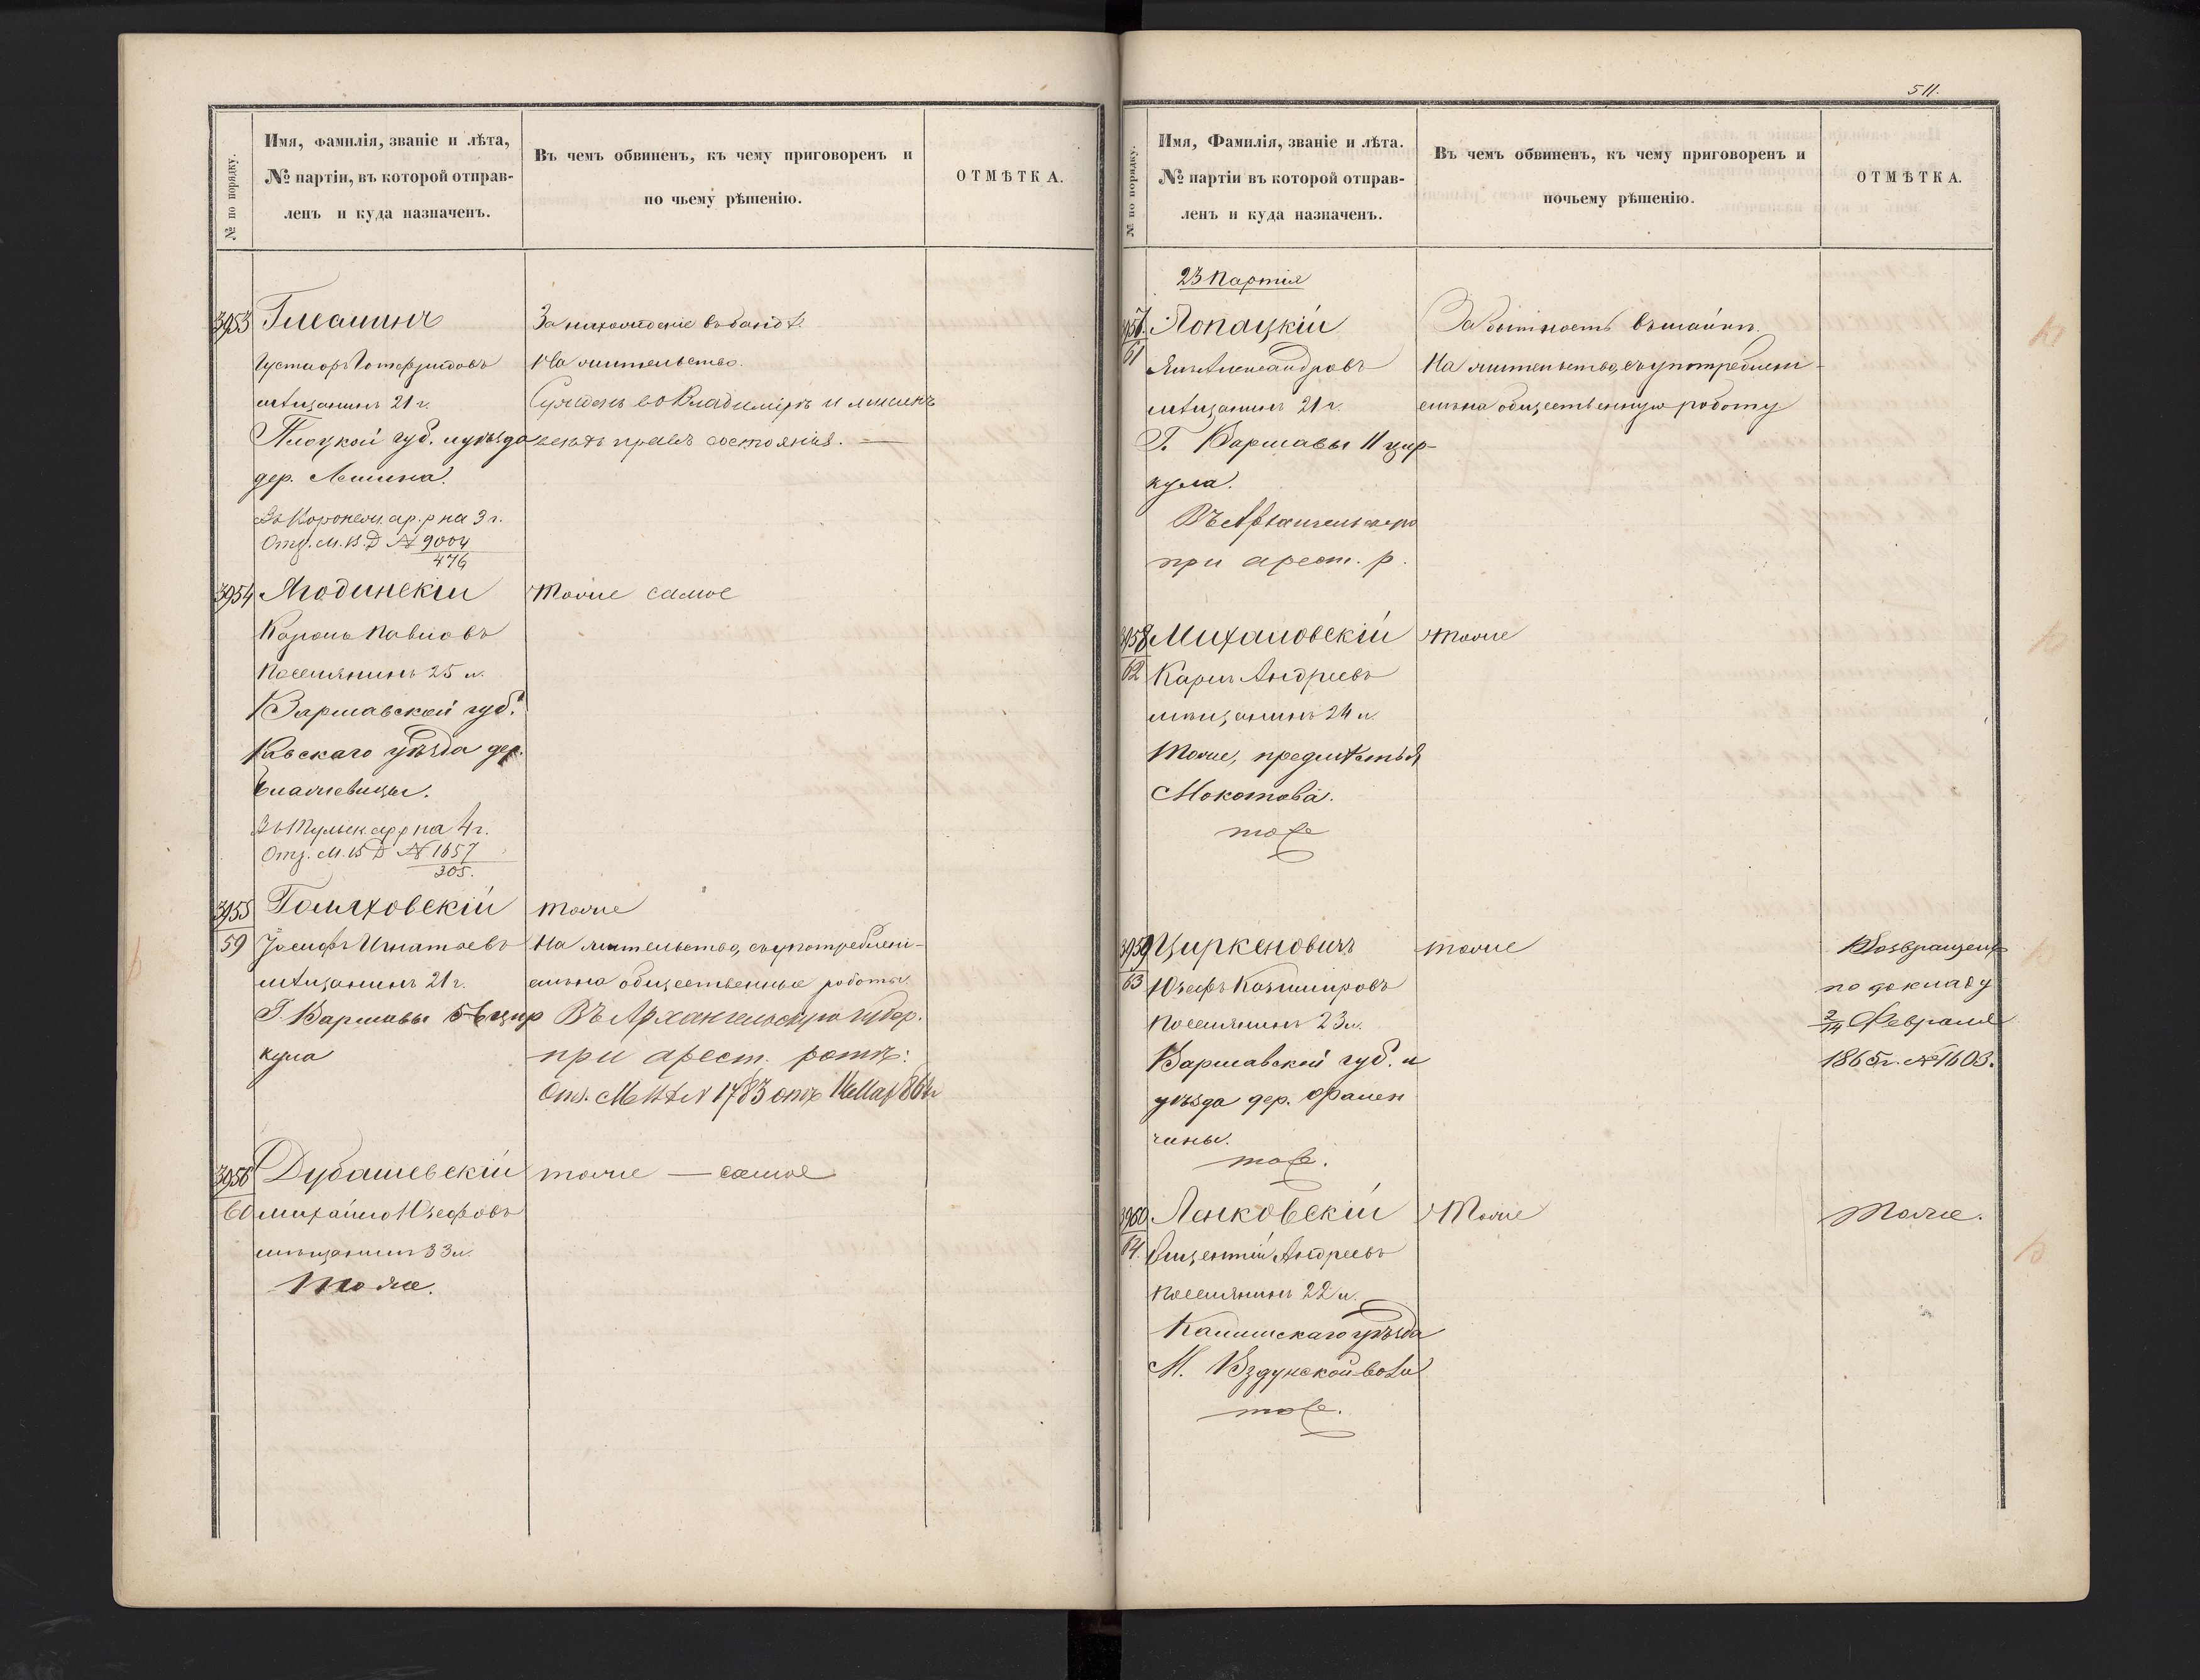 № по порядку.
Имя, фамилія, званіе и лѣта,
№ партіи, въ которой отправ-
ленъ и куда назначенъ.
Въ чемъ обвиненъ, къ чему приговоренъ и
по чьему рѣшенію.
ОТМѢТКА.
3953
Густавъ Готфридовъ
мѣщанинъ 21 г.
Плоцкой губ. и уѣзда
дер.
Въ Воронеж. ар. р на 3 г.
Отз. М. В. Д № 9004
476
За нахожденіе въ бандѣ.
На жительство.
Сужденъ во Владимірѣ и лишенъ
всѣхъ правъ состоянія. —
3954 Ягодинскій
Кароль Павловъ
Поселянинъ 25 л.
Варшавской губ.
Равскаго уѣзда дер.
Въ Тульск ар р на 4 г.
Отз. М. В Д № 1657
305.
тоже самое
3955
59
Голяховскій
Іосифъ Игнатьевъ
мѣщанинъ 21 г.
Г. Варшавы 5-6 цир
кула
тоже
На жительство, съ употреблені-
емъ на общественные работы.
Въ Архангельскую губер.
при арест. ротѣ.
3956
60
Дубашевскій
Михайло Юзефовъ
мѣщанинъ 33 л.
Тоже.
тоже — самое
511.
№ по порядку.
Имя, Фамилія, званіе и лѣта.
№ партіи въ которой отправ-
ленъ и куда назначенъ.
Въ чемъ обвиненъ, къ чему приговоренъ и
почьему рѣшенію.
ОТМѢТКА.
23 Партія
3957
61
Лопацкій
Янъ Александровъ
мѣщанинъ 21 г.
Г. Варшавы 11 цир-
кула.
Въ Архангельскую
при арест. р.
За бытность въ шайкѣ.
На жительство, съ употреблені-
емъ на общественную работу
3958
62
Михаловскій
Карлъ Андреевъ
мѣщанинъ 24 л.
Тоже, предмѣстья
Мокотова.
тоже
тоже
3959
63
Циркеновичъ
Юзефъ Казимировъ
Поселянинъ 23 л.
Варшавской губ. и
уѣзда дер. Фален
чины.
тоже.
тоже
Возвращенъ
по докладу
2/14 Февраля
1865 г. № 1603.
3960
64.
Ленковскій
Викентій Андреевъ
Поселянинъ 22 л.
Калишскаго уѣзда
М. Вздунской воли
тоже.
Тоже
Тоже.